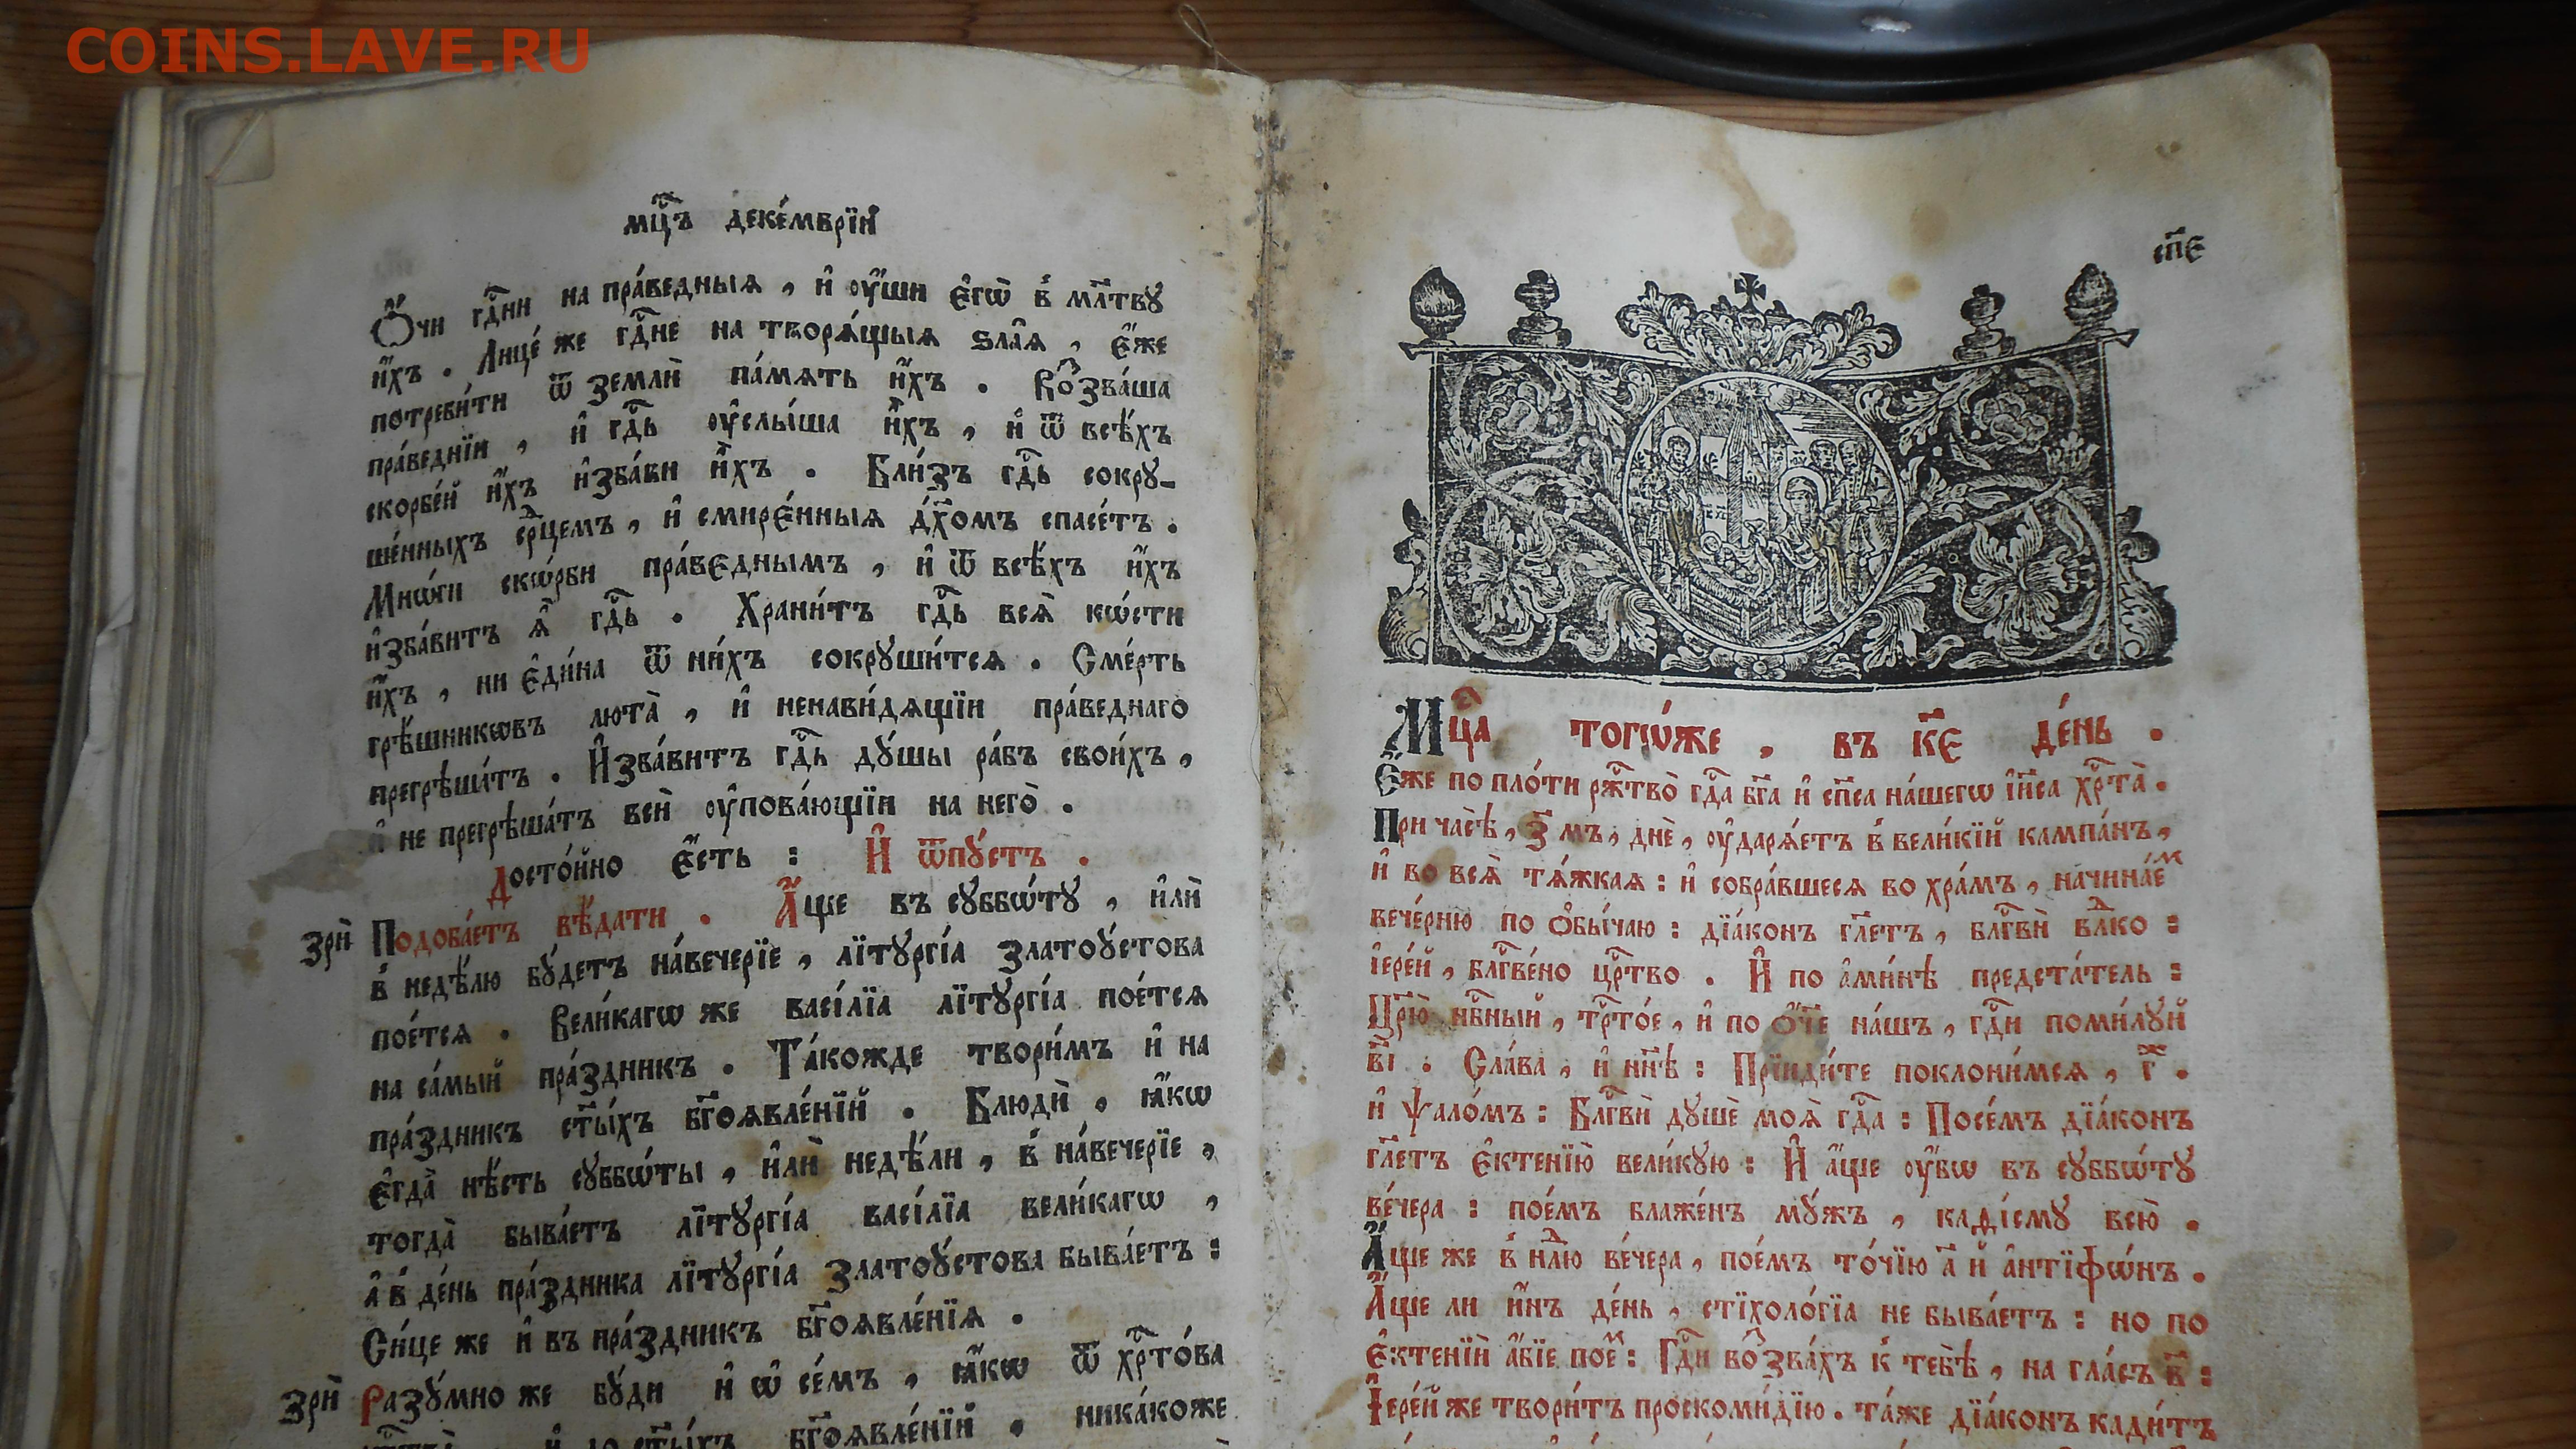 COINS.LAVE.RU
мц҃ъ деке́мврїй
Ѻ҆́чи гдⷭ҇ни на пра́ведныѧ , и҆ ᲂу҆́ши є҆гѡ̀ в̾ мл҃твꙋ
и҆́хъ . Лице́ же гдⷭ҇не на творѧ́щыѧ ѕла̑ѧ , є҆́же
потреби́ти ѿ землѝ па́мѧть и҆́хъ . Воⷥзва́ша
пра́веднїи , и҆ гдⷭ҇ь ᲂу҆слы́ша и҆̀хъ , и҆ ѿ всѣ́хъ
скорбе́й и҆́хъ и҆зба́ви и҆̀хъ . Бли́зъ гдⷭ҇ь сокрꙋ-
ше́нныхъ срⷣцемъ , и҆ смире́нныѧ дх҃омъ спасе́тъ .
Мнѡ́ги скѡ́рби пра́вєднымъ , и҆ ѿ всѣ́хъ и҆́хъ
и҆зба́витъ ѧ҆̀ гдⷭ҇ь . Храни́тъ гдⷭ҇ь всѧ̀ кѡ́сти
и҆́хъ , ни є҆ди́на ѿ ни́хъ сокрꙋши́тсѧ . Сме́рть
грѣ́шникѡвъ люта̀ , и҆ ненави́дѧщїи пра́веднаго
прегрѣша́тъ . И҆зба́витъ гдⷭ҇ь дꙋ́шы ра́бъ свои́хъ ,
и҆ не прегрѣша́тъ всѝ ᲂу҆пова́ющїи на него̀ .
Досто́йно є҆́сть : И҆ ѿпꙋ́стъ .
зрѝ Подоба́етъ вѣ́дати . А҆́ще въ сꙋббѡ́тꙋ , и҆лѝ
в̾ недѣ́лю бꙋ́детъ на́вечерїе , лїтꙋргі́а златоꙋ́стова
пое́тсѧ . Вели́кагѡ же васі́лїа лїтꙋргі́а пое́тсѧ
на са́мый пра́здникъ . Та́кожде твори́мъ и҆ на
пра́здникъ ст҃ы́хъ бг҃оѧвле́нїй . Блюдѝ , ꙗ҆́кѡ
є҆гда̀ нѣ́сть сꙋббѡ́ты , и҆лѝ недѣ́ли , в̾ на́вечерїе ,
тогда̀ быва́етъ лїтꙋргі́а васі́лїа вели́кагѡ ,
а҆ в̾ де́нь пра́здника лїтꙋргі́а златоꙋ́стова быва́етъ :
Си́це же и҆ въ пра́здникъ бг҃оѧвле́нїѧ .
зрѝ Разꙋ́мно же бꙋ́ди и҆ ѡ҆ се́мъ , ꙗ҆́кѡ ѿ хрⷭ҇то́ва
и҆ до ст҃ы́хъ бг҃оѧвле́нїй . ника́коже
сп҃є
Мцⷭ҇а тогѡ́же , въ к҃є де́нь .
Є҆́же по пло́ти ржⷭ҇тво̀ гдⷭ҇а бг҃а и҆ сп҃са на́шегѡ і҆и҃са хрⷭ҇та̀ .
При часѣ̀ , з҃ мъ , днѐ , ᲂу҆дарѧ́етъ в̾ вели́кїй кампа́нъ ,
и҆ во всѧ̀ тѧ́жкаѧ : и҆ собра́вшесѧ во хра́мъ , начина́еⷨ
вече́рню по ѻ҆бы́чаю : дїа́конъ гл҃етъ , блгⷭ҇вѝ влⷣко :
і҆ере́й , блгⷭ҇ве́но црⷭ҇тво . И҆ по а҆ми́нѣ предста́тель :
Цр҃ю̀ нбⷭ҇ный , трⷭ҇то́е , и҆ по ѻ҆́ч҃е на́шъ , гдⷭ҇и поми́лꙋй
в҃і . Сла́ва , и҆ нн҃ѣ : Прїиди́те поклони́мсѧ , г҃ .
и҆ ѱало́мъ : Блгⷭ҇вѝ дꙋшѐ моѧ̀ гдⷭ҇а : Посе́мъ дїа́конъ
гл҃етъ є҆ктенїю̀ вели́кꙋю : И҆ а҆́ще ᲂу҆́бѡ въ сꙋббѡ́тꙋ
ве́чера : пое́мъ блаже́нъ мꙋ́жъ , каѳі́смꙋ всю̀ .
А҆́ще же в̾ нлⷣю ве́чера , пое́мъ то́чїю а҃ й а҆нтїфѡ́нъ .
А҆́ще ли и҆́нъ де́нь , стїхоло́гїа не быва́етъ : но по
є҆ктенїѝ а҆́бїе пое́ⷨ : Гдⷭ҇и воⷥзва́хъ к̾ тебѣ̀ , на гла́съ в҃ :
І҆ере́й же твори́тъ проскоми́дїю . та́же дїа́конъ кади́тъ